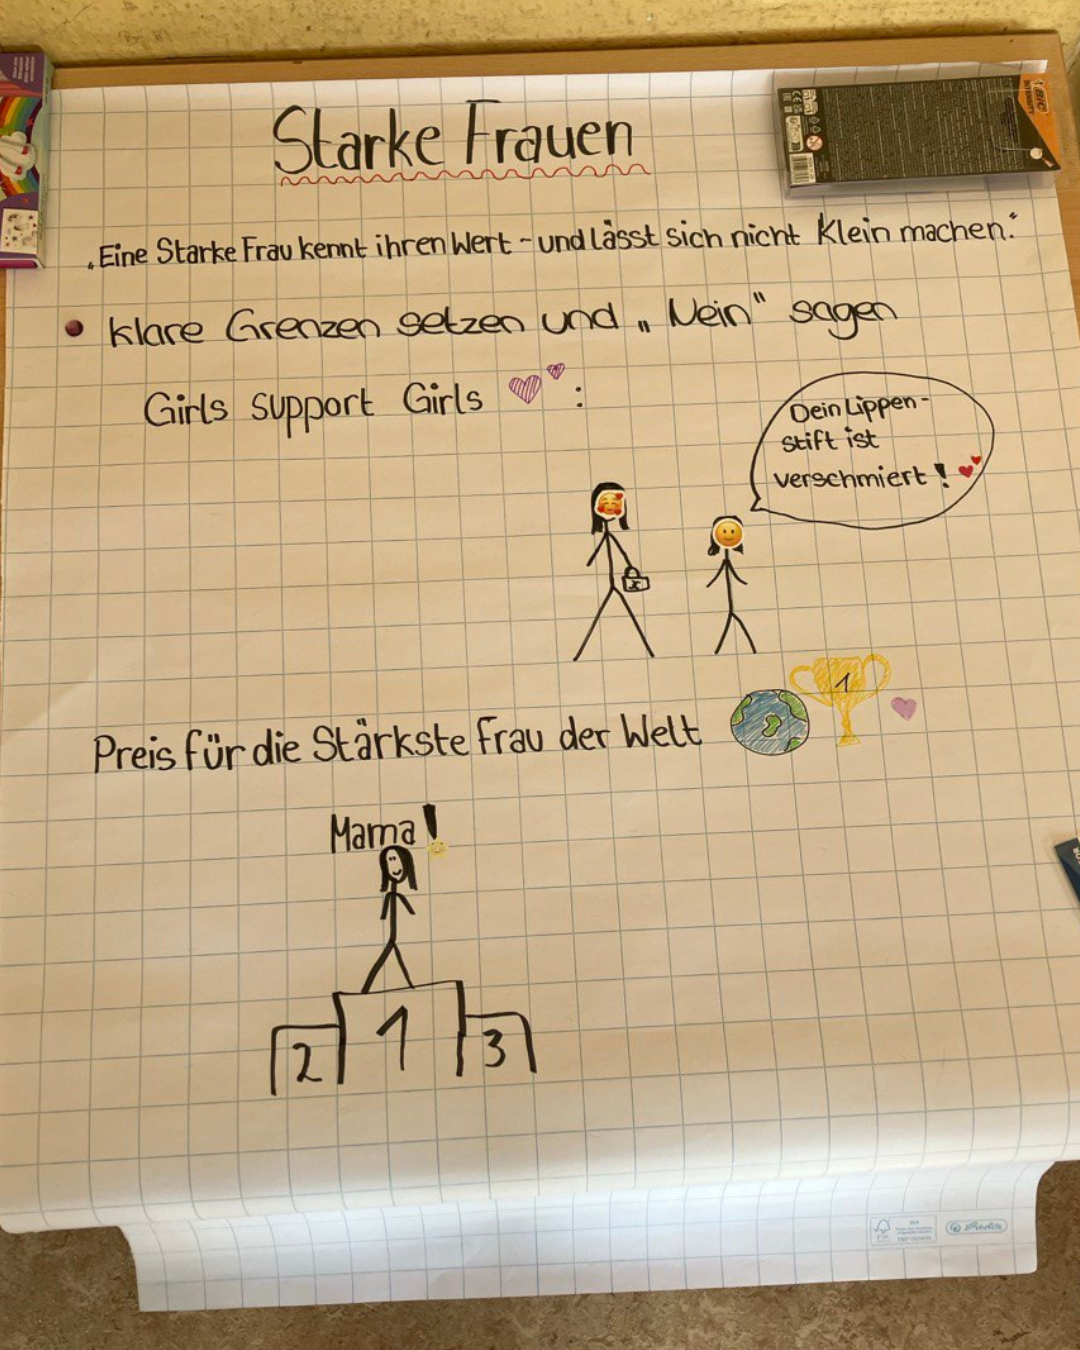 Starke Frauen
„Eine Starke Frau kennt ihren Wert - und lässt sich nicht klein machen.“
• klare Grenzen setzen und „Nein“ sagen
Girls support Girls :
Dein Lippen-
stift ist
verschmiert!
1
Preis für die Stärkste Frau der Welt
Mama!
2 1 3
BIC
INTENSITY